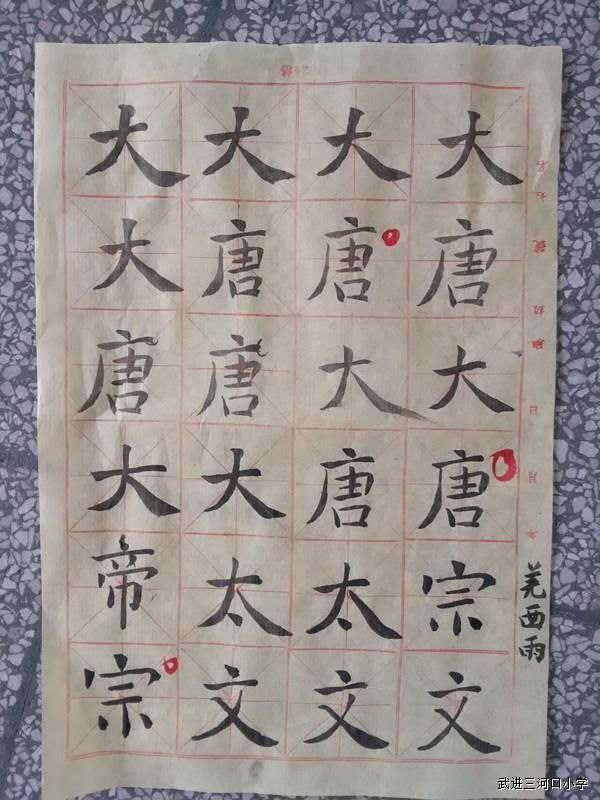 大大大大
大唐唐唐
唐唐大大
大大唐唐
帝太太宗
宗文文文
羌西雨
武进三河口小学